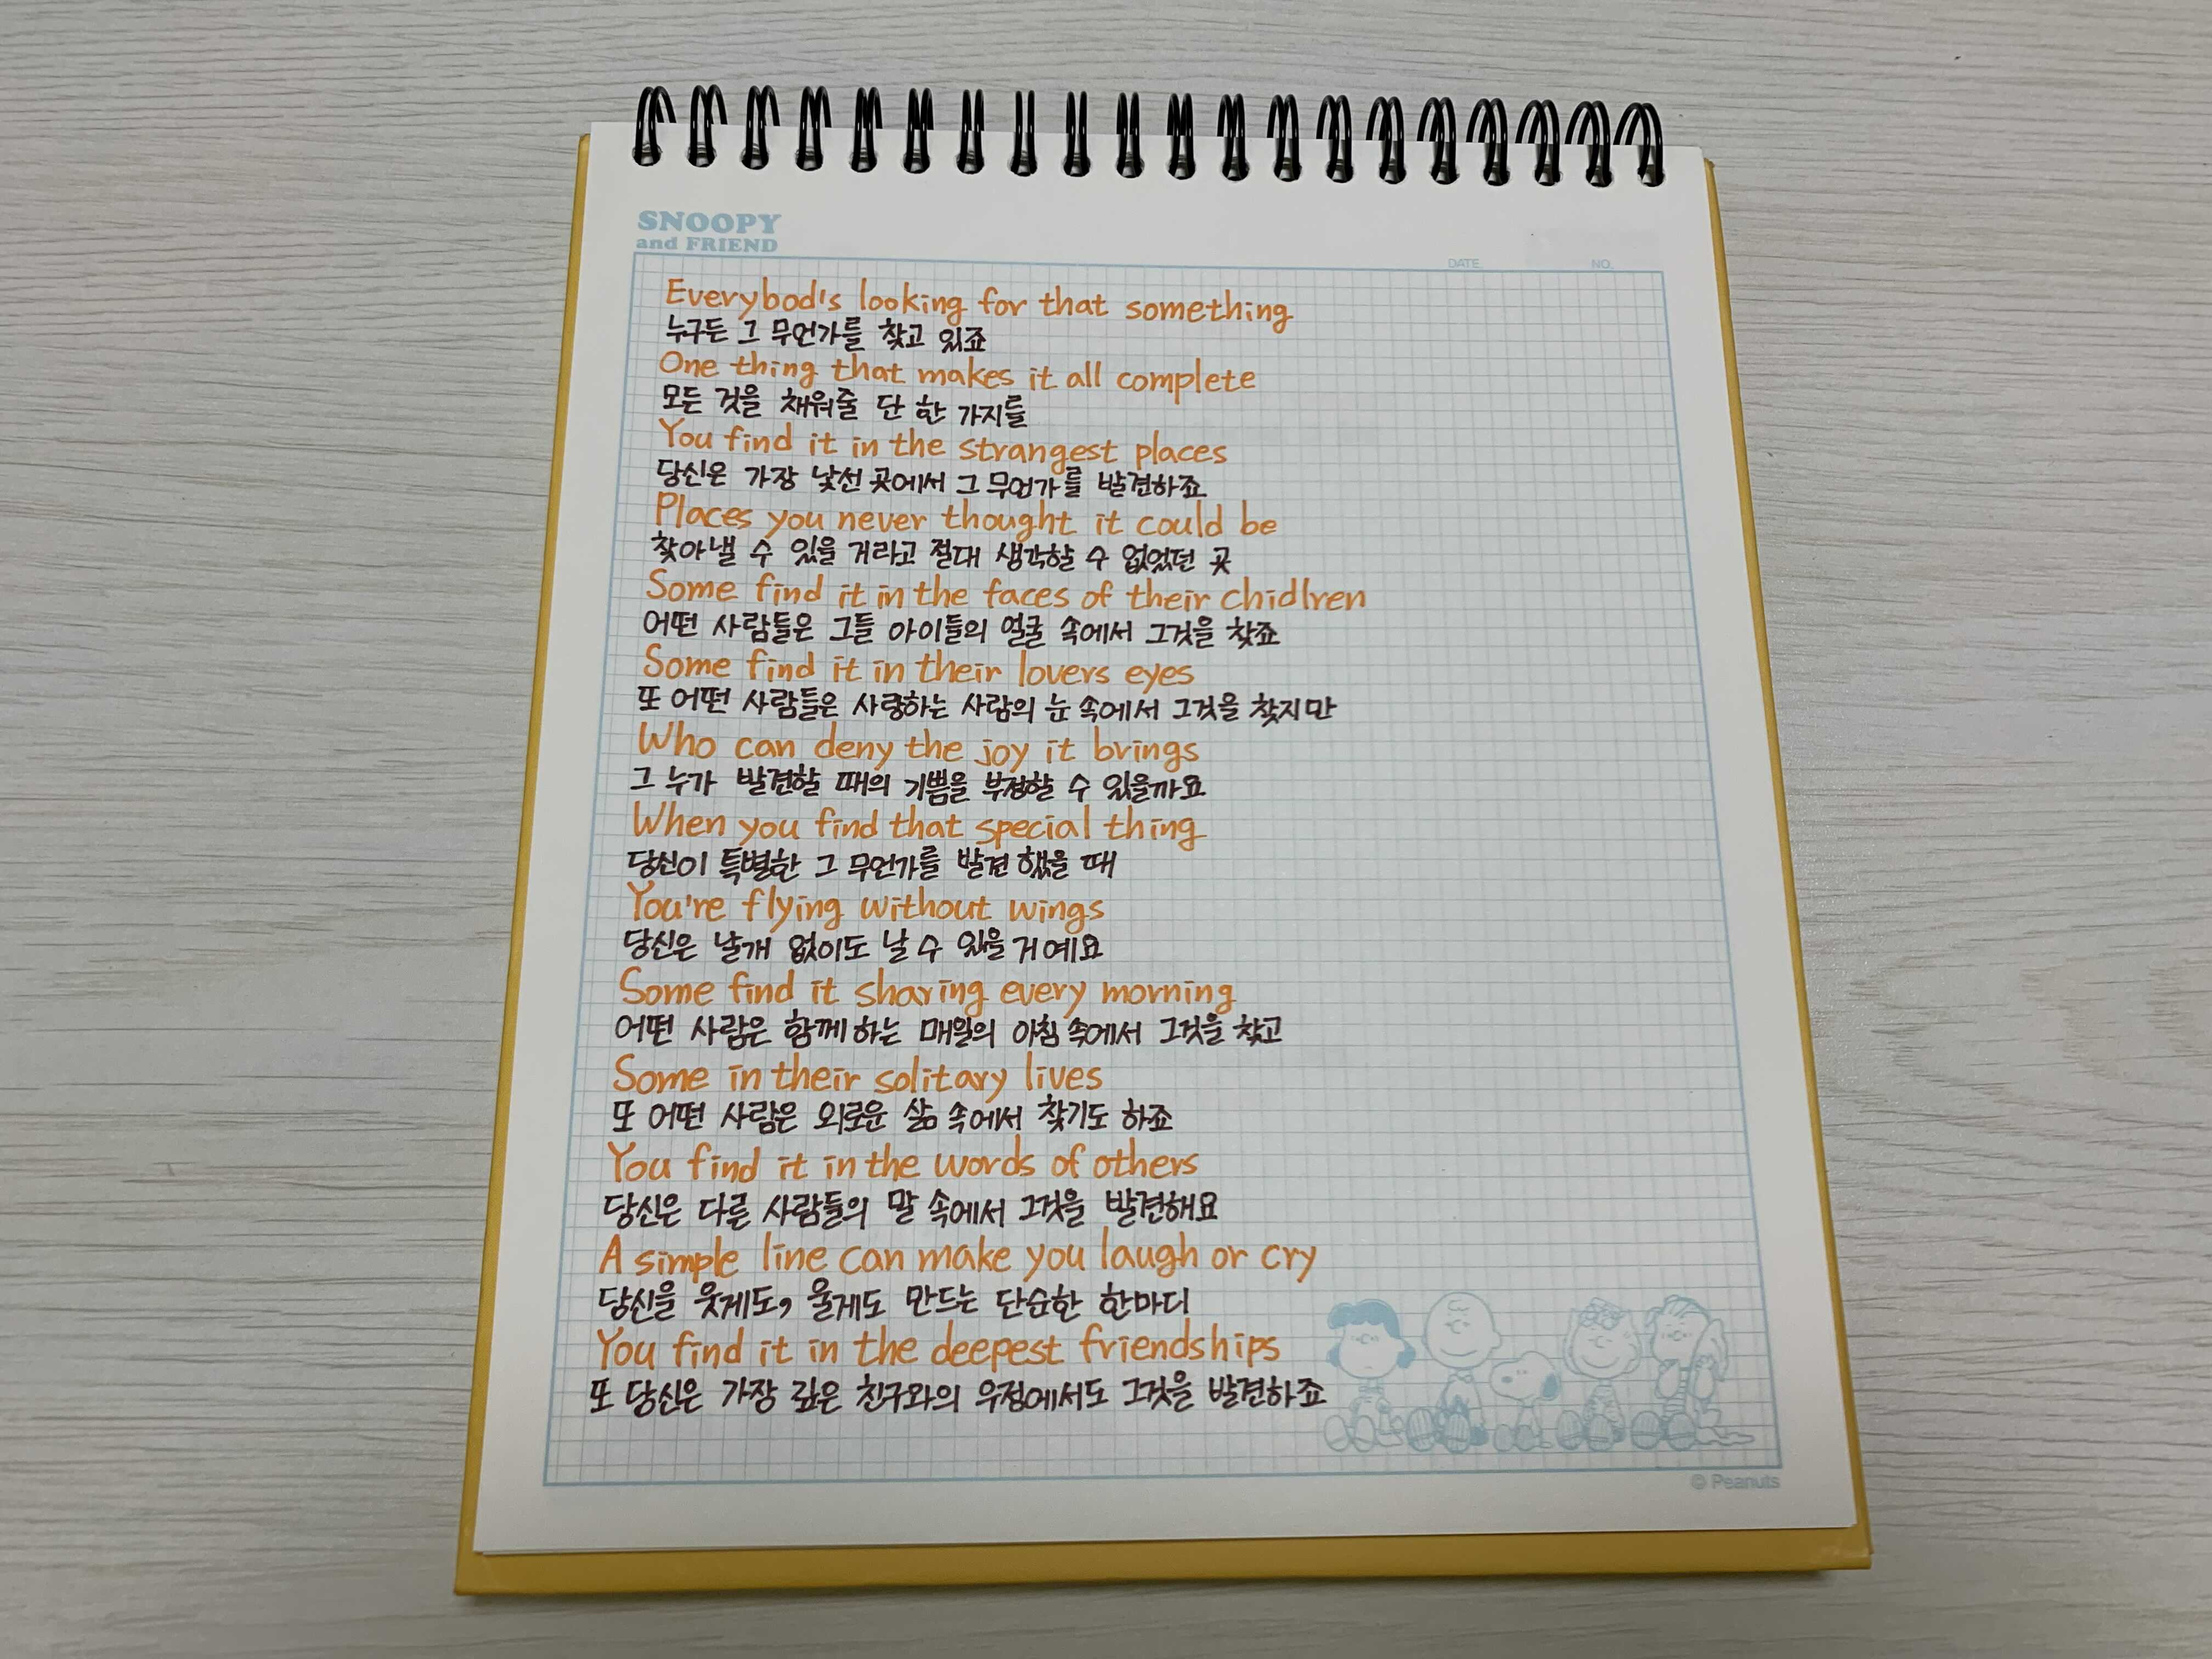 SNOOPY
and FRIEND
DATE. NO.
Everybod's looking for that something
누구든 그 무언가를 찾고 있죠
One thing that makes it all complete
모든 것을 채워줄 단 한 가지를
You find it in the strangest places
당신은 가장 낯선 곳에서 그 무언가를 발견하죠
Places you never thought it could be
찾아낼 수 있을 거라고 절대 생각할 수 없었던 곳
Some find it in the faces of their chidlren
어떤 사람들은 그들 아이들의 얼굴 속에서 그것을 찾죠
Some find it in their lovers eyes
또 어떤 사람들은 사랑하는 사람의 눈 속에서 그것을 찾지만
Who can deny the joy it brings
그 누가 발견할 때의 기쁨을 부정할 수 있을까요
When you find that special thing
당신이 특별한 그 무언가를 발견했을 때
You're flying without wings
당신은 날개 없이도 날 수 있을 거예요
Some find it sharing every morning
어떤 사람은 함께하는 매일의 아침 속에서 그것을 찾고
Some in their solitary lives
또 어떤 사람은 외로운 삶 속에서 찾기도 하죠
You find it in the words of others
당신은 다른 사람들의 말 속에서 그것을 발견해요
A simple line can make you laugh or cry
당신을 웃게도, 울게도 만드는 단순한 한마디
You find it in the deepest friendships
또 당신은 가장 깊은 친구와의 우정에서도 그것을 발견하죠
© Peanuts